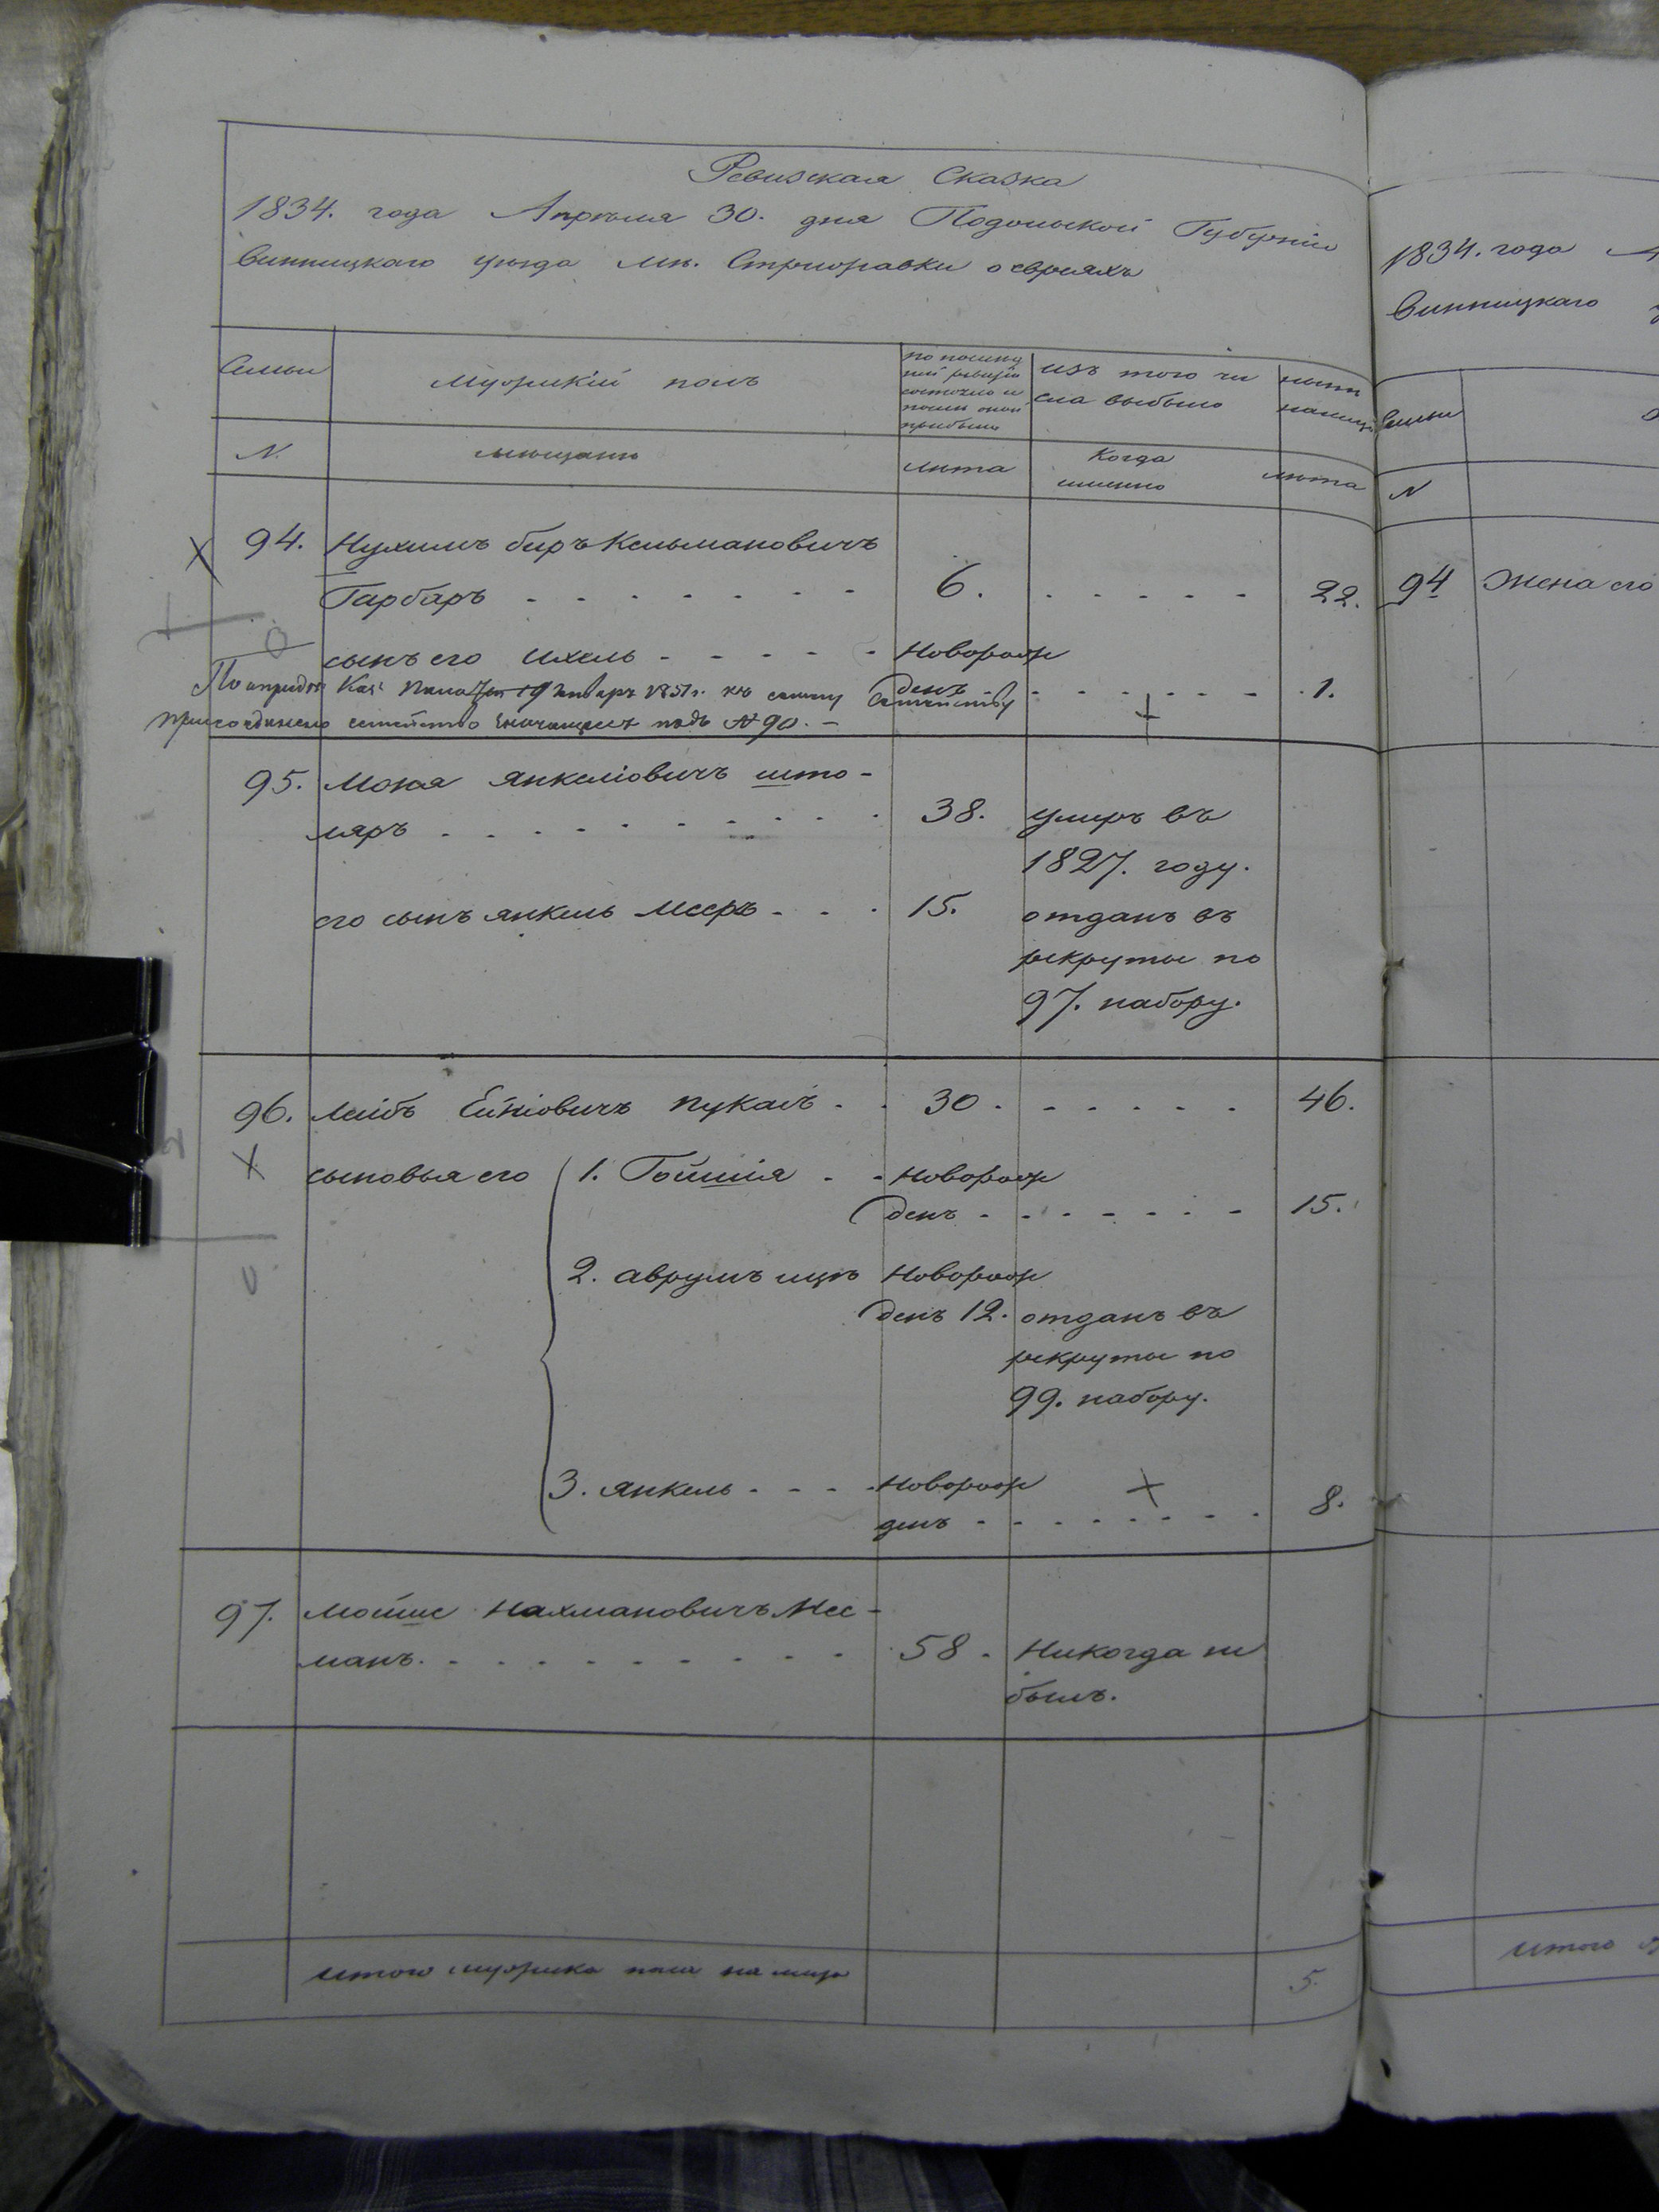 Ревизская Сказка
1834. года Апреля 30. дня Подольской Губернiи
Винницкаго уезда мп. Стрижавки о евреяхъ
Семьи
Мужикiй полъ
по последней ревизiи состояло и после оной прибыло
изъ того числа выбыло
ныне налицо
N.
мещане
лета
Когда именно
лета
94. Нухимъ беръ Кельмановичъ
Гарбаръ - - - - - - 6. - - - - - 22.
сынъ его Ихель - - - - - Новорож
денъ - - - - - - 1.
По Каз: 19 Января 1851 г. къ семейству
присоединено семейство значащееся подъ № 90. –
95. Мошя Янкелiовичъ што-
ляръ - - - - - - - - 38. умеръ въ
1827. году.
его сынъ янкель Мееръ - - - 15. отданъ въ
рекруты по
97. набору.
96. Лейбъ Ейнiовичъ пукалъ - - 30. - - - - - 46.
сыновья его 1. Гойшiя - - Новорож
денъ - - - - - - - 15.
2. аврумъ ицъ Новорож
денъ 12. отданъ въ
рекруты по
99. набору.
3. янкель - - - - Новорож
денъ - - - - - - - - 8.
97. Мойше Нахмановичъ Нес-
манъ. - - - - - - - - - 58. Никогда не
былъ.
итого мужеска пола на лицо 5.
1834. года А
Винницкаго
Семьи
N
94 Жена его
итого